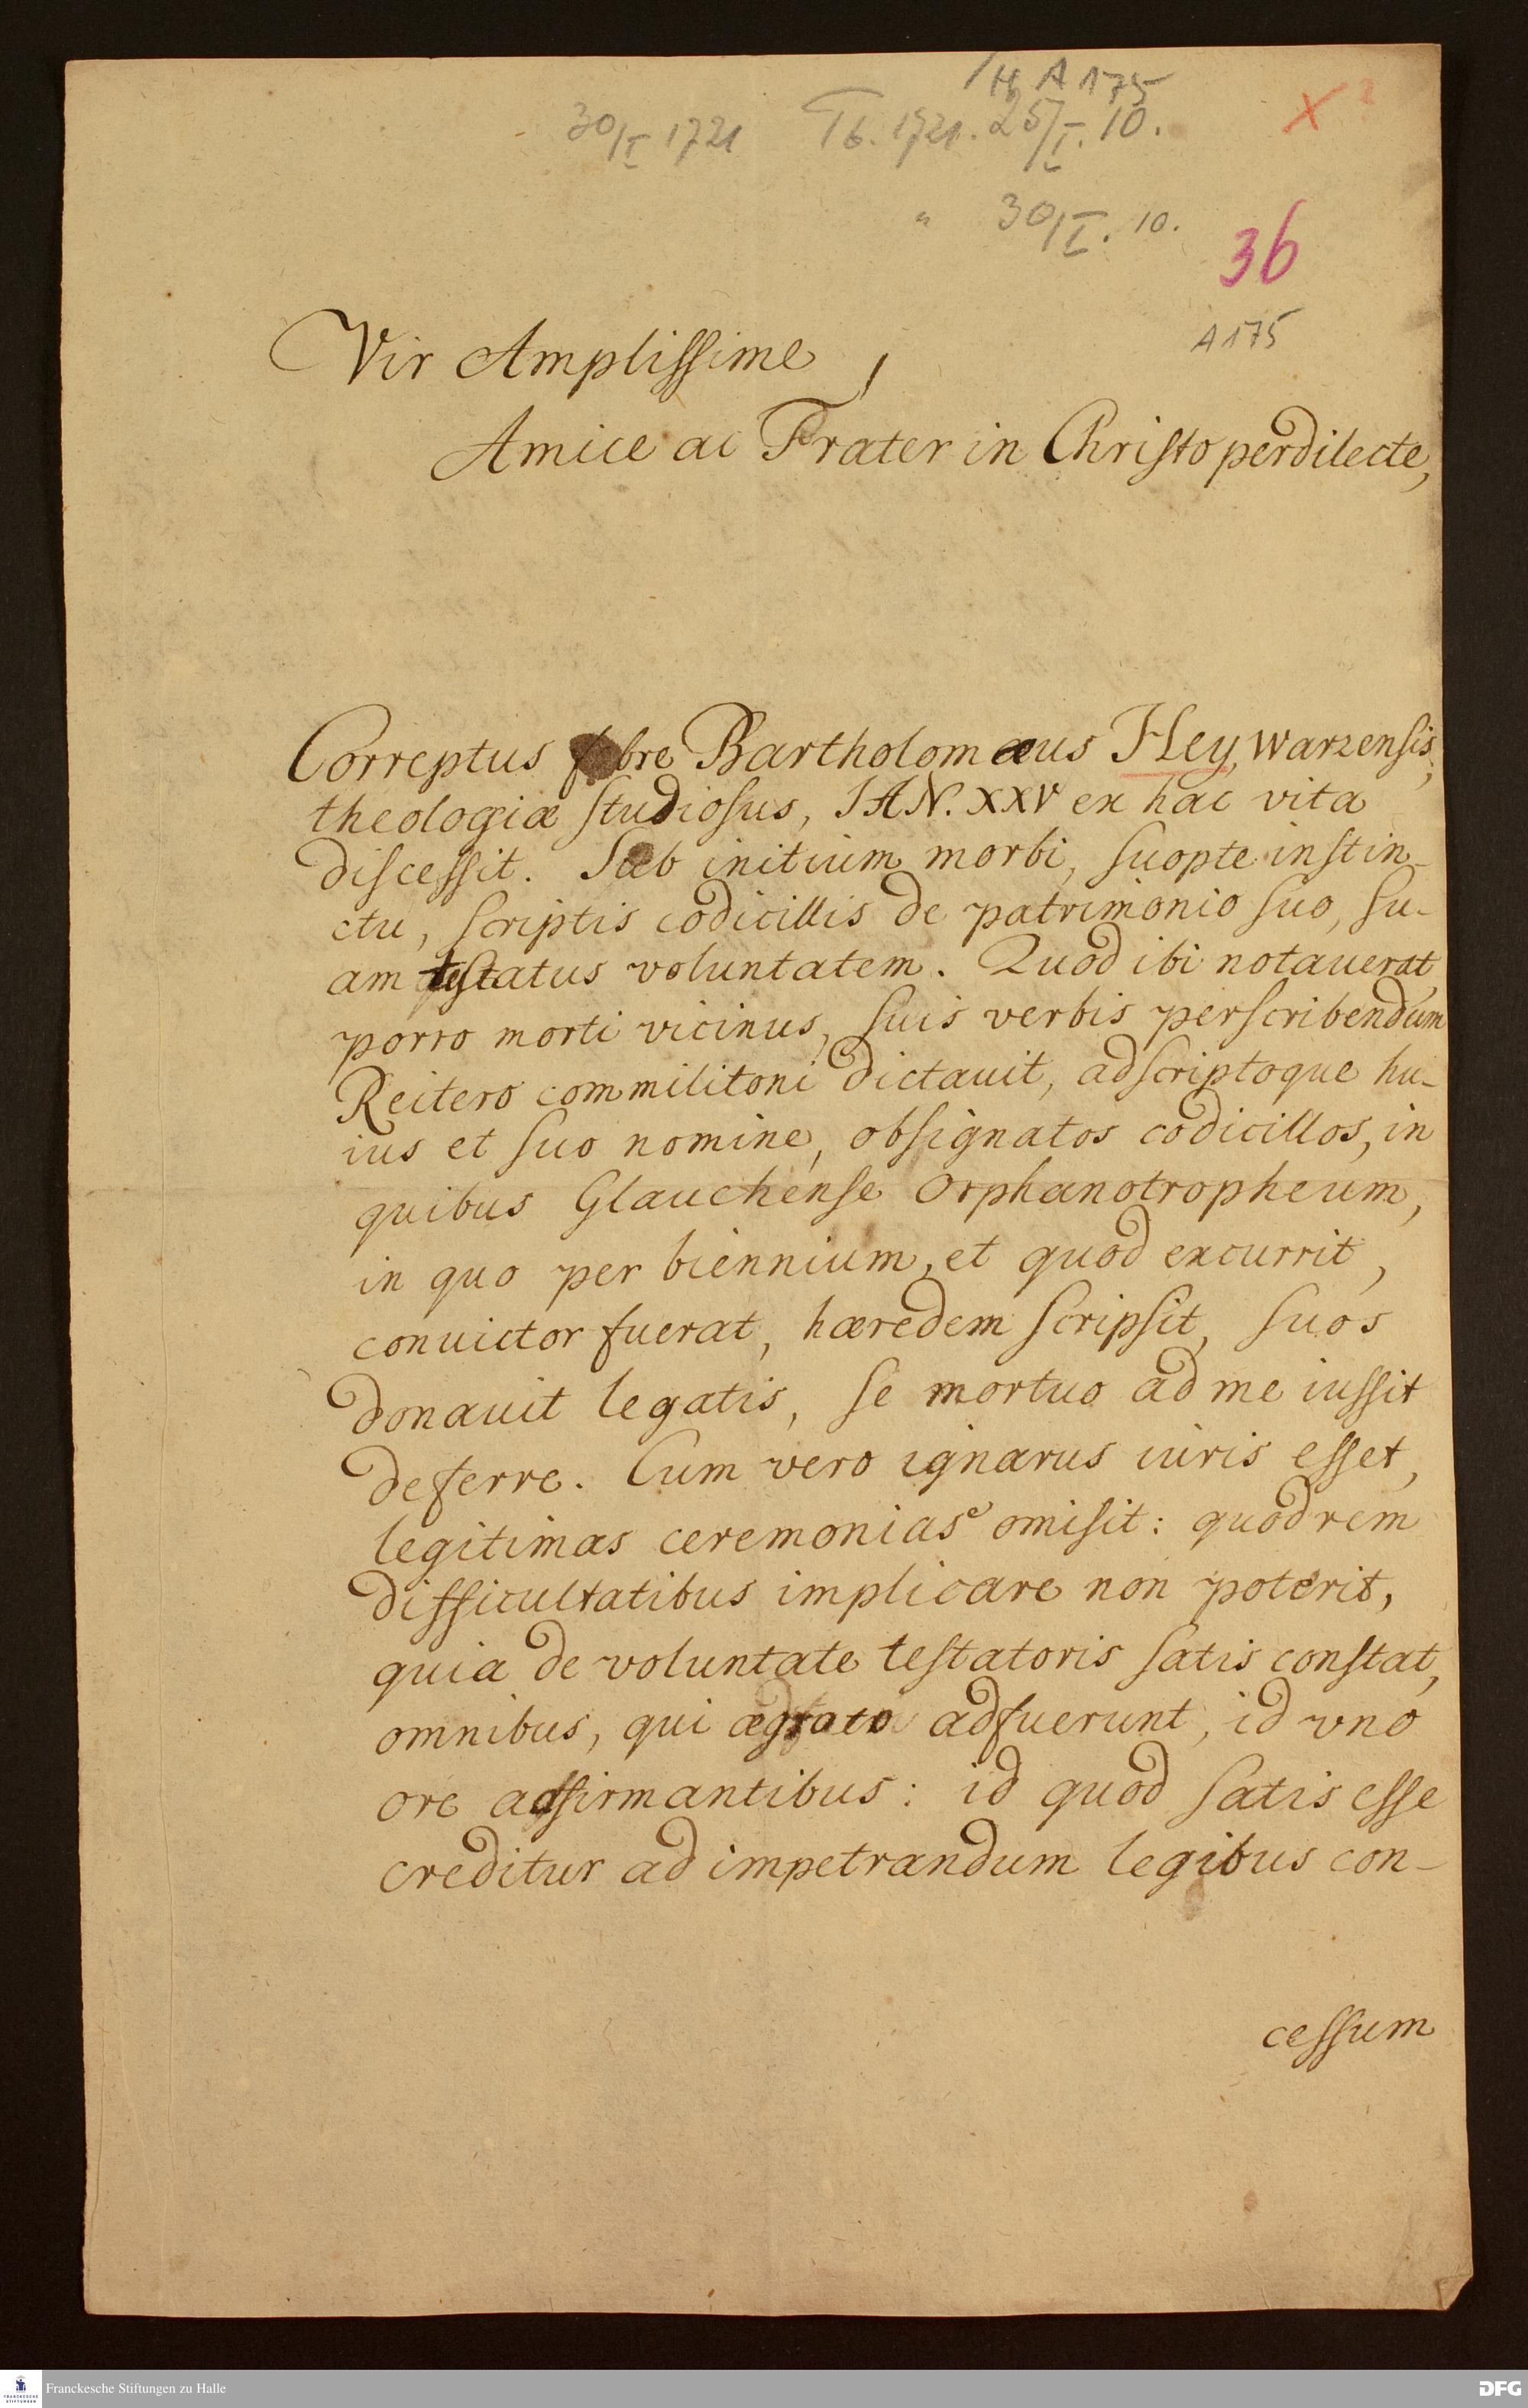 H A 175
30/I 1721 Tb. 1721. 25/I. 10.
" 30/I. 10.
36
A 175
Vir Amplissime,
Amice ac Frater in Christo perdilecte,
Correptus febre Bartholomæus Hey, warzensis,
theologiæ studiosus, IAN. XXV ex hac vita
discessit. Sub initium morbi, suopte instin-
ctu, scriptis codicillis de patrimonio suo, su-
am testatus voluntatem. Quod ibi notauerat,
porro morti vicinus, suis verbis perscribendum
Reitero commilitoni dictauit, adscriptoque hu-
ius et suo nomine, obsignatos codicillos, in
quibus Glauchense Orphanotropheum,
in quo per biennium, et quod excurrit,
conuictor fuerat, hæredem scripsit, suos
donauit legatis, se mortuo ad me iussit
deferre. Cum vero ignarus iuris esset,
legitimas ceremonias omisit: quod rem
difficultatibus implicare non poterit,
quia de voluntate testatoris satis constat,
omnibus, qui ægroto adfuerunt, id vno
ore adfirmantibus: id quod satis esse
creditur ad impetrandum legibus con-
cessum
Franckesche Stiftungen zu Halle
FRANCKESCHE STIFTUNGEN
DFG